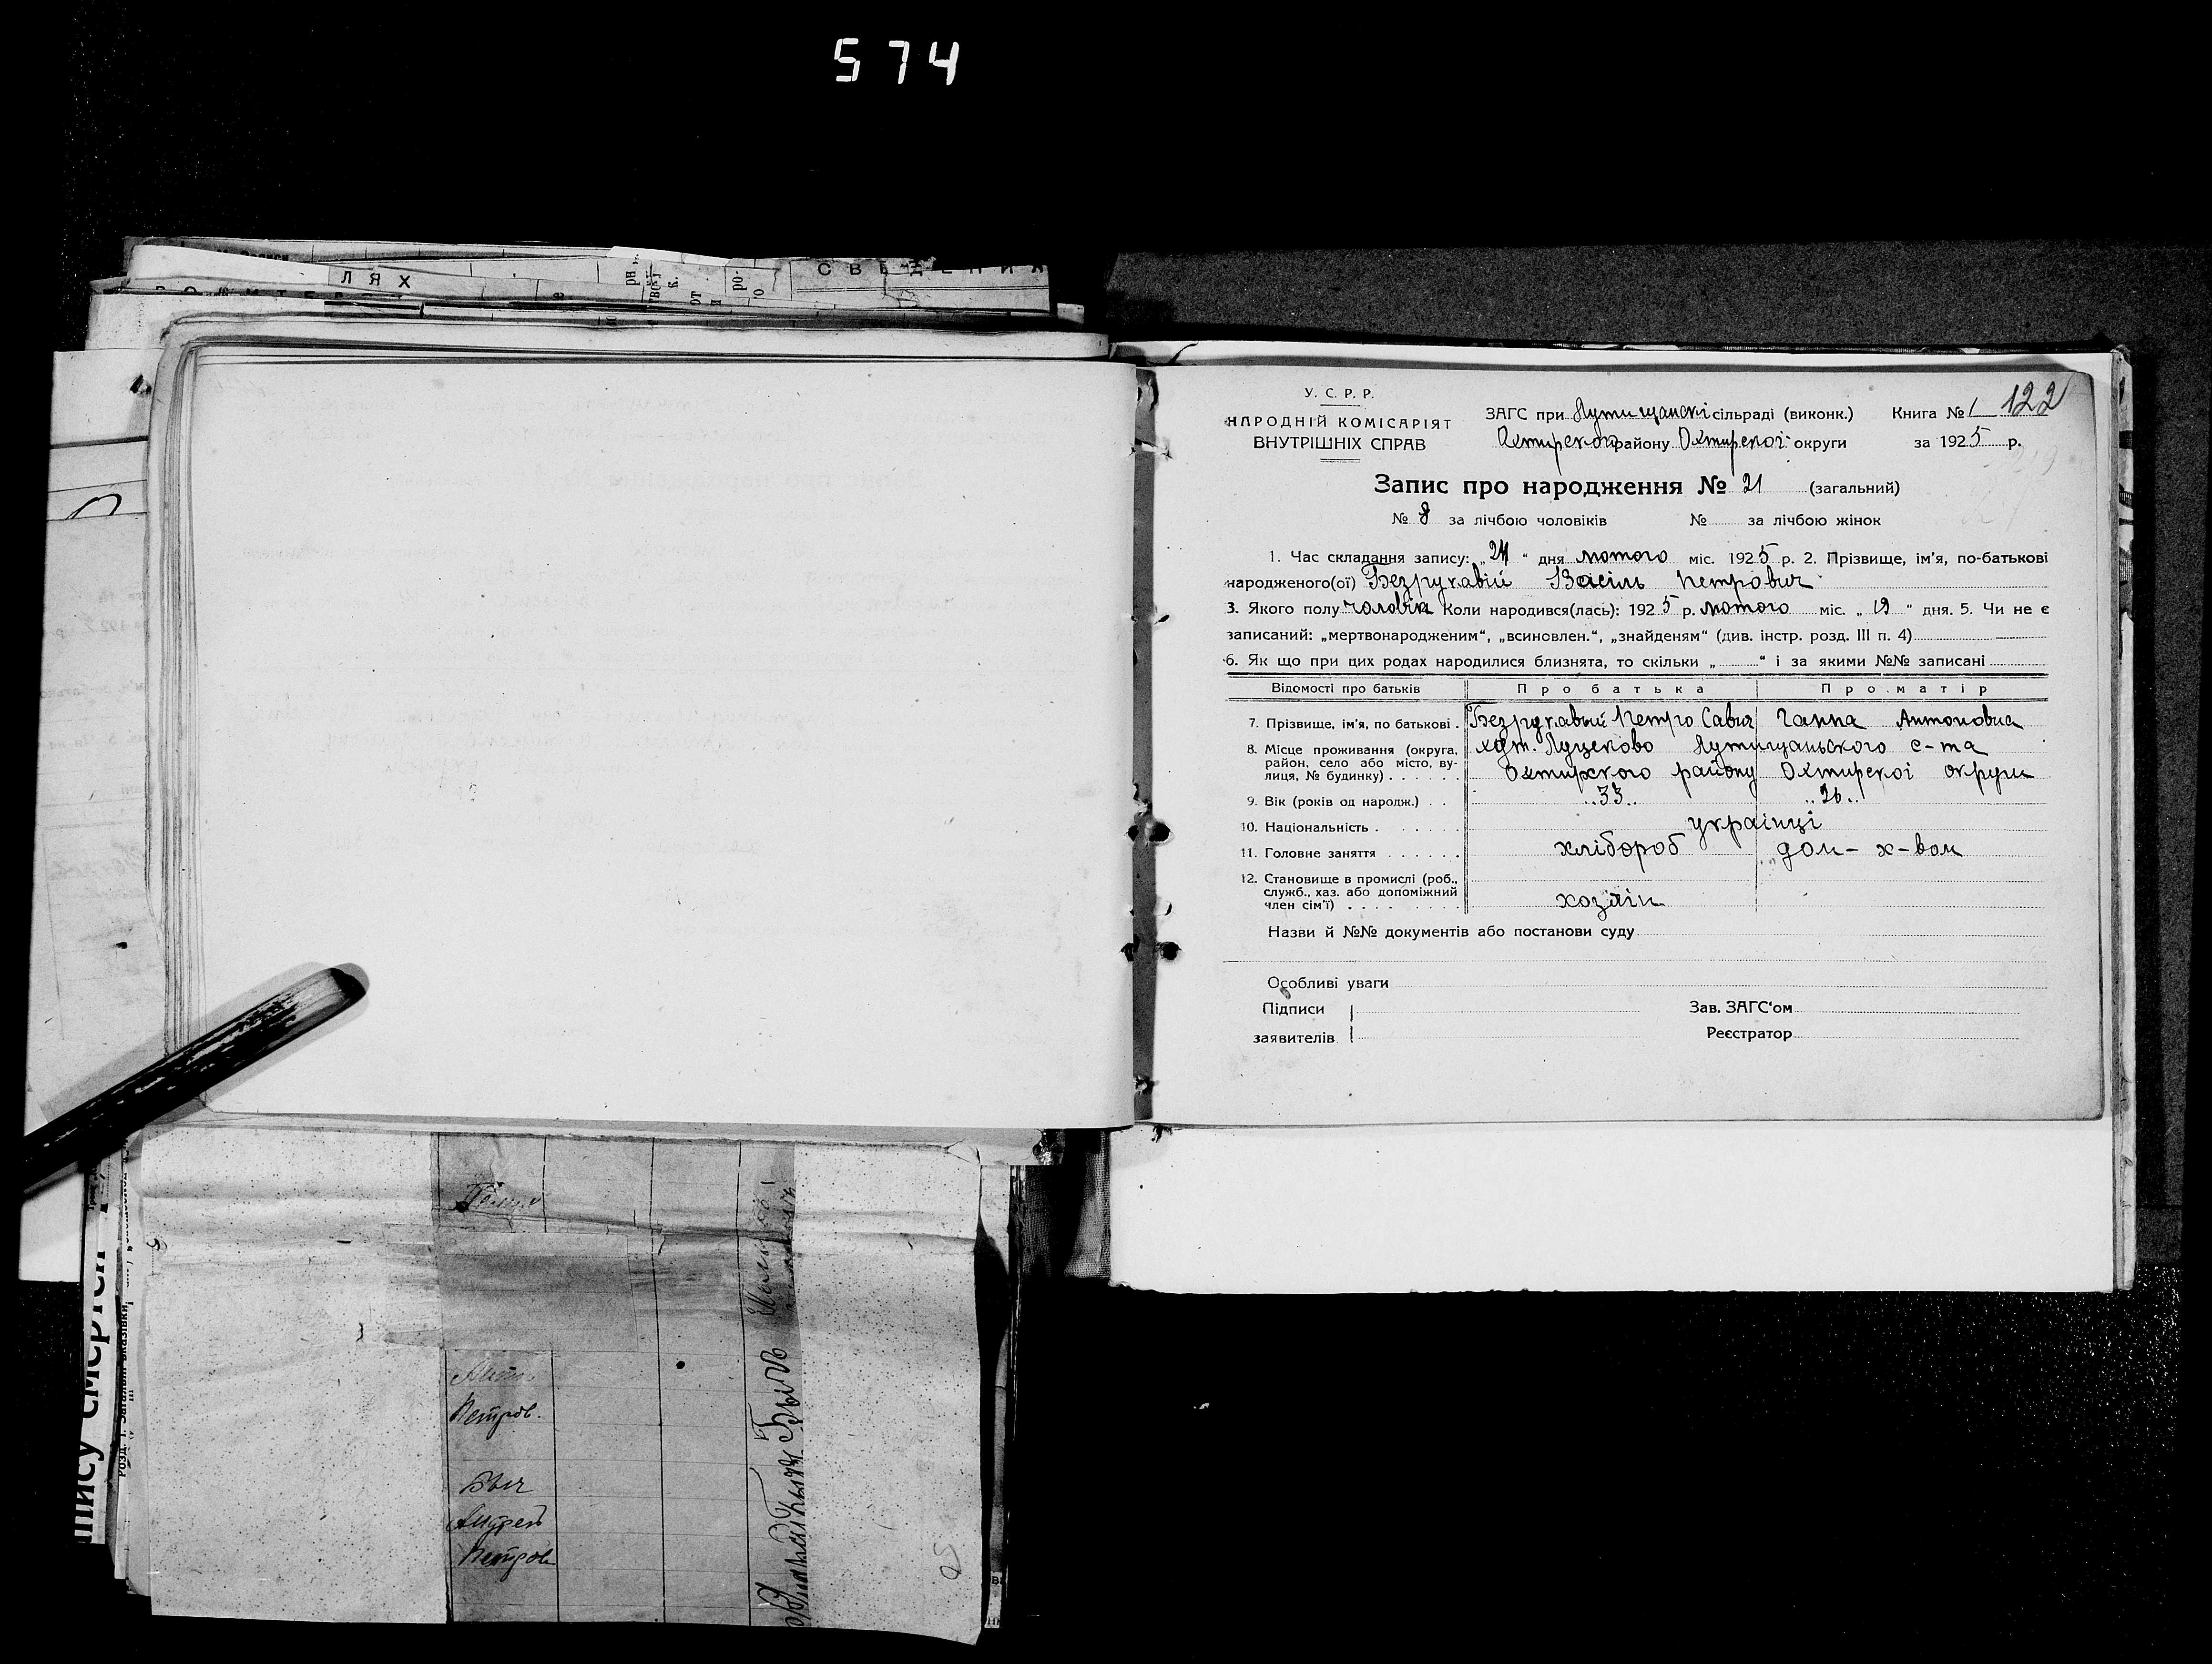 574
ЛЯХ
У. С. Р. Р.
НАРОДНІЙ КОМІСАРІЯТ
ВНУТРІШНІХ СПРАВ
ЗАГС при Лутищанскі сільраді (виконк.) Книга № 1 122
Охтирского району Охтирскоі округи за 1925 р.
Запис про народження № 21 (загальний)
№ 8 за лічбою чоловіків № за лічбою жінок
1. Час складання запису: „24“ дня лютого міс. 1925 р. 2. Прізвище, ім'я, по-батькові
народженого(ої) Безрукавій Васіль Петрович
3. Якого полу чоловік Коли народився(лась): 1925 р. лютого міс. „19“ дня. 5. Чи не є
записаний: „мертвонародженим“, „всиновлен.“, „знайденям“ (див. інстр. розд. III п. 4)
6. Як що при цих родах народилися близнята, то скільки „ “ і за якими №№ записані
Відомості про батьків Про батька Про матір
7. Прізвище, ім'я, по батькові Безрукавый Петро Савич Ганна Антоновна
8. Місце проживання (округа, район, село або місто, вулиця, № будинку) хут. Луценково Лутищанського с-та
Охтирского району Охтирскоі округи
9. Вік (років од народж.) 33 26
10. Національність українці
11. Головне заняття хлібороб дом-х-вом
12. Становище в промислі (роб., служб., хаз. або допоміжний член сім'ї) хозяін
Назви й №№ документів або постанови суду
Особливі уваги
Підписи Зав. ЗАГС'ом
заявителів Реєстратор
Петров.
Быч
Андрей
Петров